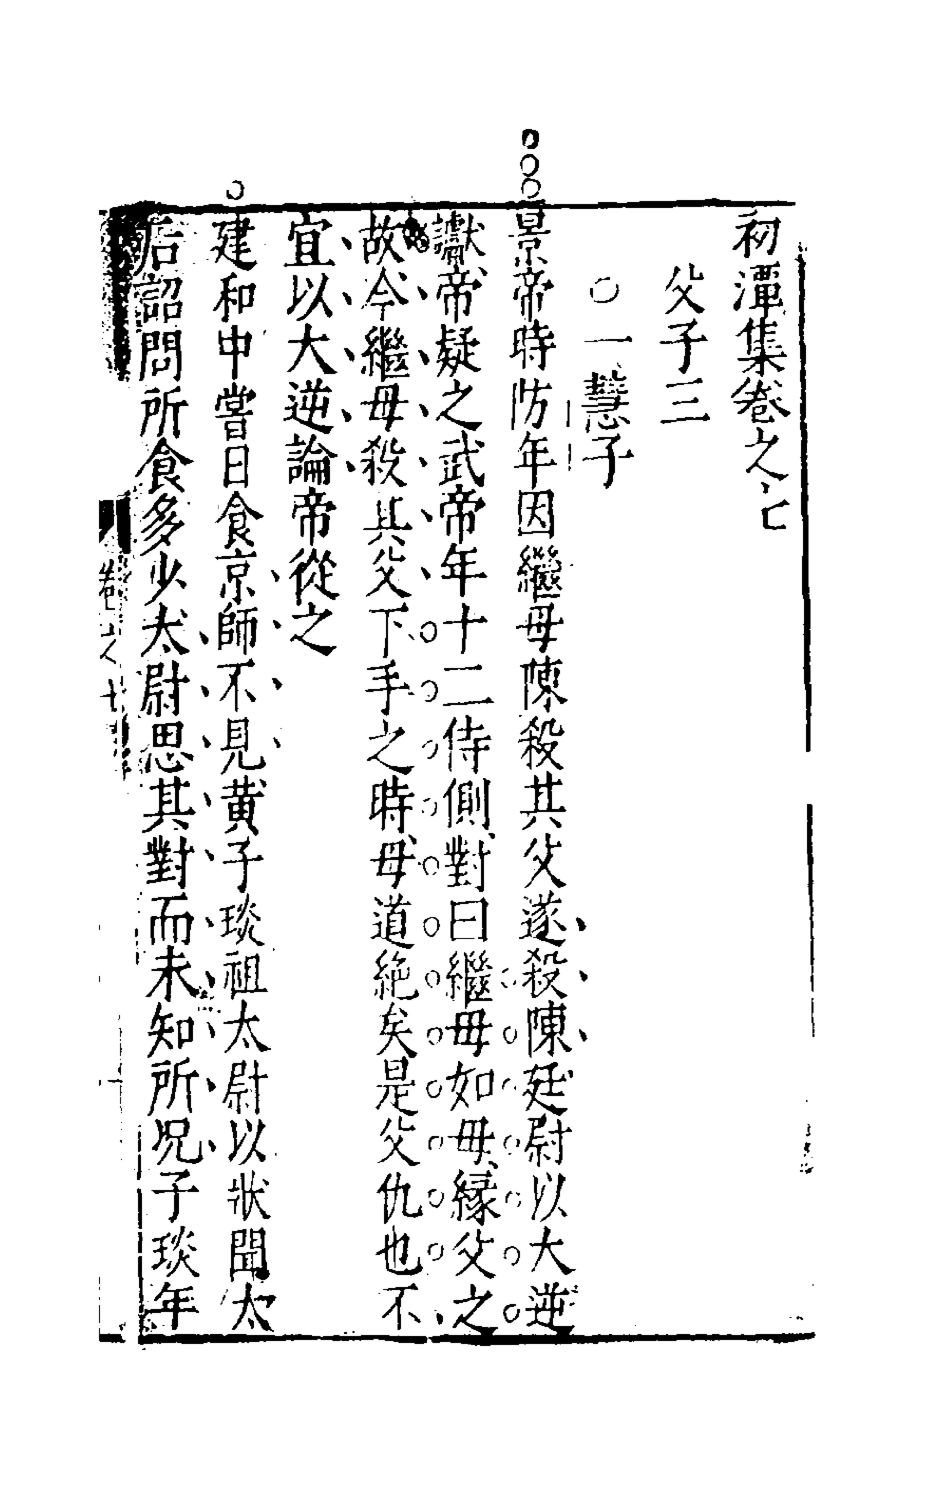 初潭集卷之七
父子三
○一慧子
景帝時防年因繼母陳殺其父遂殺陳廷尉以大逆
讞帝疑之武帝年十二侍側對曰繼母如母緣父之
故今繼母殺其父下手之時母道絶矣是父仇也不
宜以大逆論帝從之
建和中嘗日食京師不見黄子琰祖太尉以狀聞太
后詔問所食多少太尉思其對而未知所况子琰年
卷之七